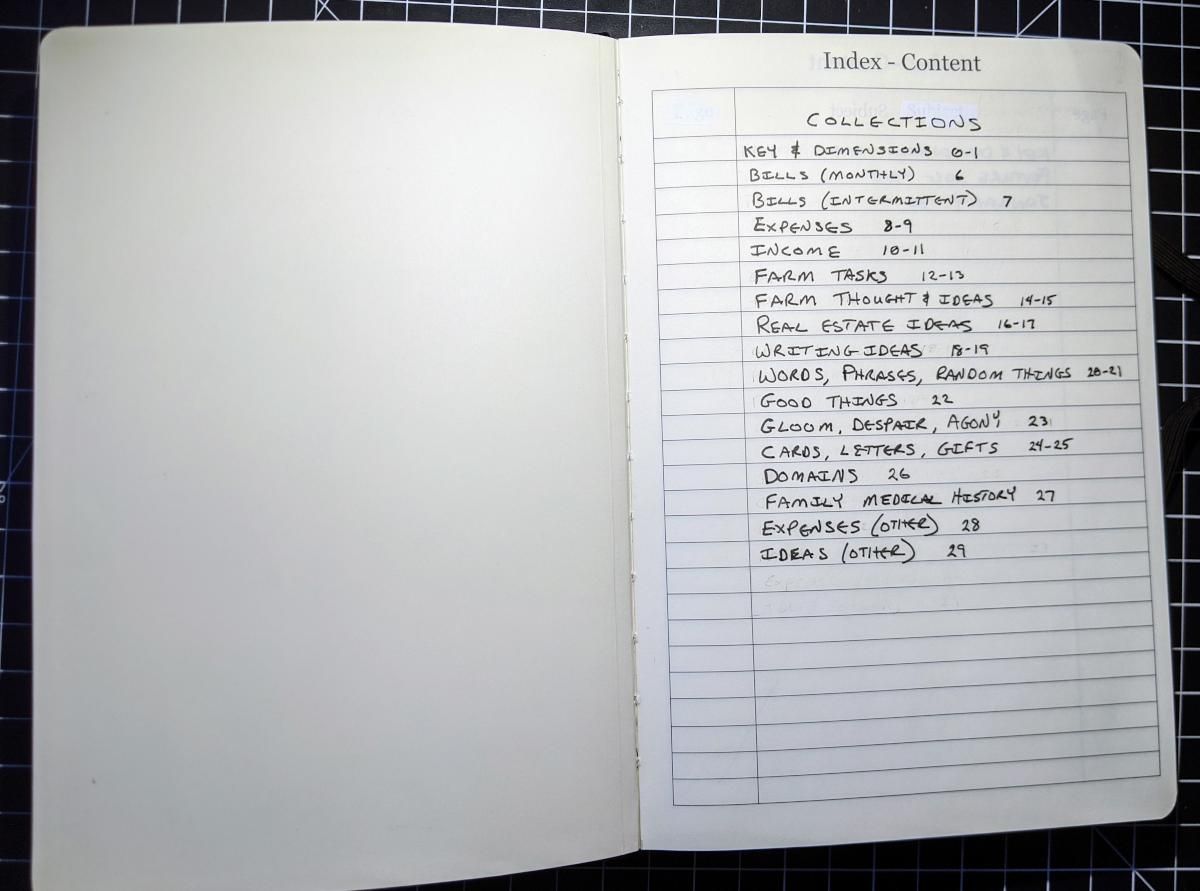 Index - Content
COLLECTIONS
KEY & DIMENSIONS 0-1
BILLS (MONTHLY) 6
BILLS (INTERMITTENT) 7
EXPENSES 8-9
INCOME 10-11
FARM TASKS 12-13
FARM THOUGHT & IDEAS 14-15
REAL ESTATE IDEAS 16-17
WRITING IDEAS 18-19
WORDS, PHRASES, RANDOM THINGS 20-21
GOOD THINGS 22
GLOOM, DESPAIR, AGONY 23
CARDS, LETTERS, GIFTS 24-25
DOMAINS 26
FAMILY MEDICAL HISTORY 27
EXPENSES (OTHER) 28
IDEAS (OTHER) 29